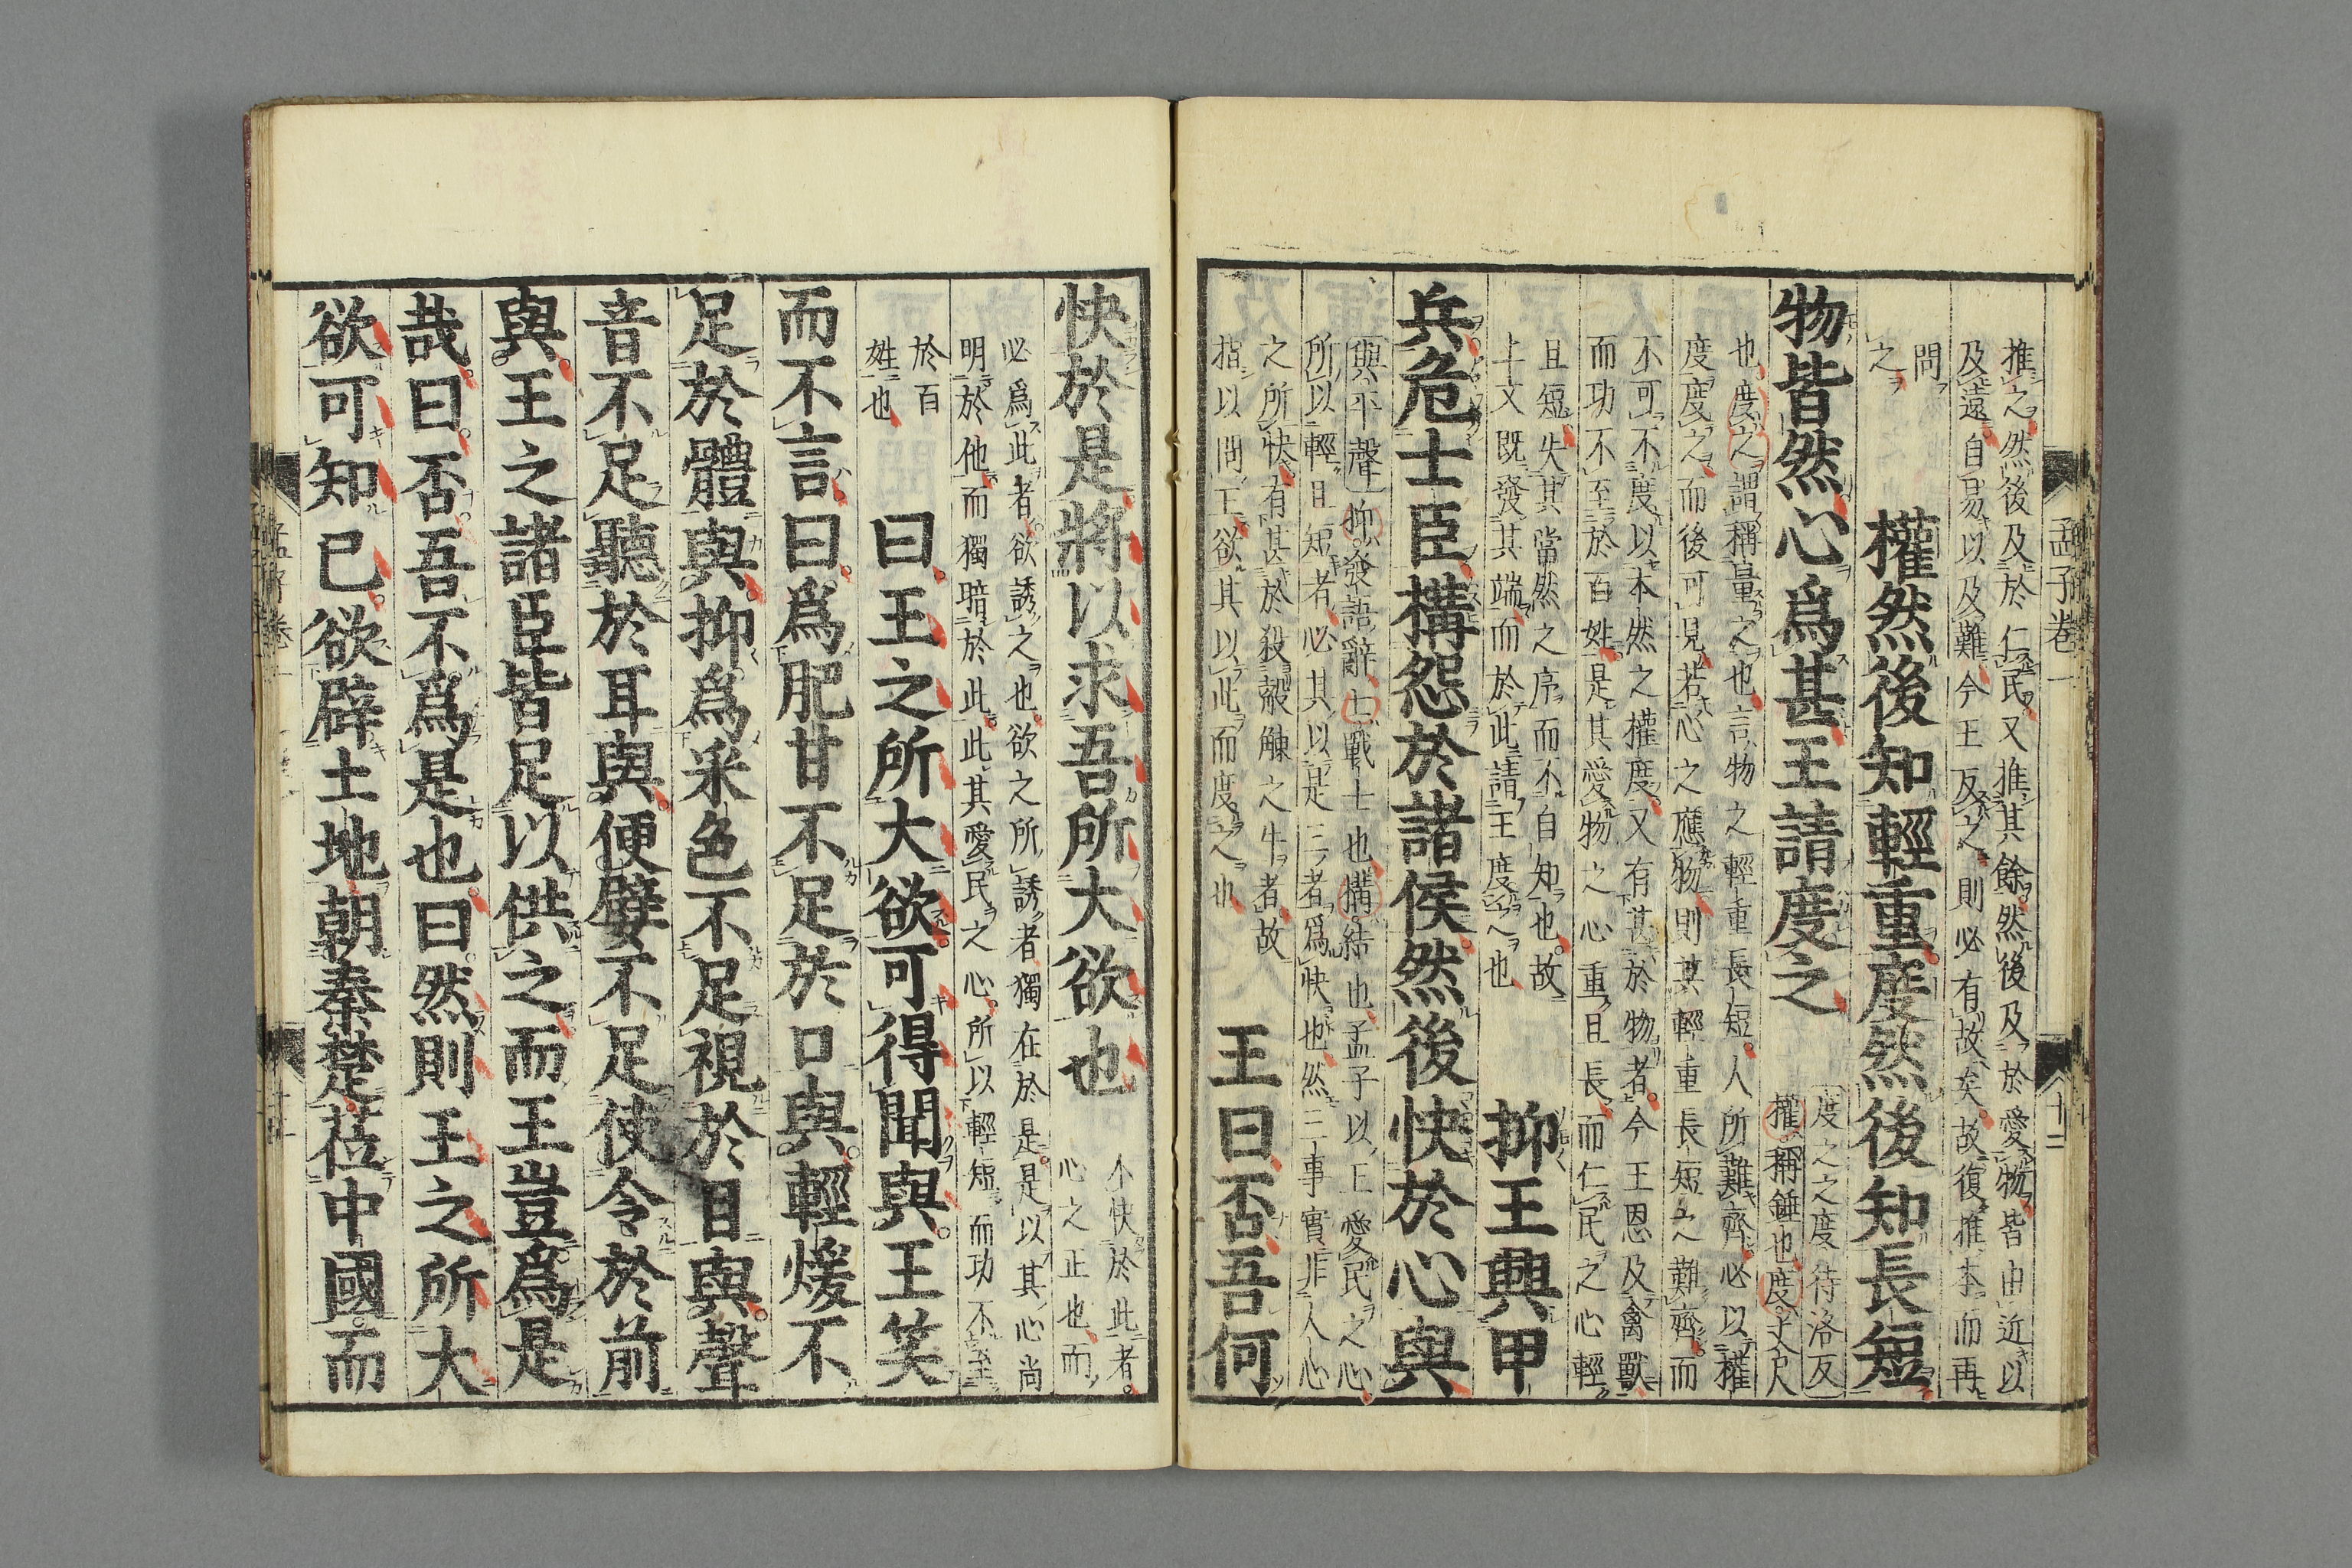 推之然後及於仁民又推其餘然後及於愛物皆由近以
及遠自易以及難今王反之則必有故矣故復推本而再
問
之
權然後知輕重度然後知長短
物皆然心爲甚王請度之
度之之度待洛反
權稱錘也度丈尺
也度之謂稱量之也言物之輕重長短人所難齊必以權
度度之而後可見若心之應物則其輕重長短之難齊而
不可不度以本然之權度又有甚於物者今王恩及禽獸
而功不至於百姓是其愛物之心重且長而仁民之心輕
且短失其當然之序而不自知也故
上文既發其端而於此請王度之也
抑王興甲
兵危士臣構怨於諸侯然後快於心與
與平聲抑發語辭士戰士也構結也孟子以王愛民之心
所以輕且短者必其以是三者爲快也然三事實非人心
之所快有甚於殺觳觫之牛者故
指以問王欲其以此而度之也
王曰否吾何
快於是將以求吾所大欲也
不快於此者
心之正也而
必爲此者欲誘之也欲之所誘者獨在於是是以其心尚
明於他而獨暗於此此其愛民之心所以輕短而功不至
於百
姓也
曰王之所大欲可得聞與王笑
而不言曰爲肥甘不足於口與輕煖不
足於體與抑爲采色不足視於目與聲
音不足聽於耳與便嬖不足使令於前
與王之諸臣皆足以供之而王豈爲是
哉曰否吾不爲是也曰然則王之所大
欲可知已欲辟土地朝秦楚莅中國而
孟子卷一
十二